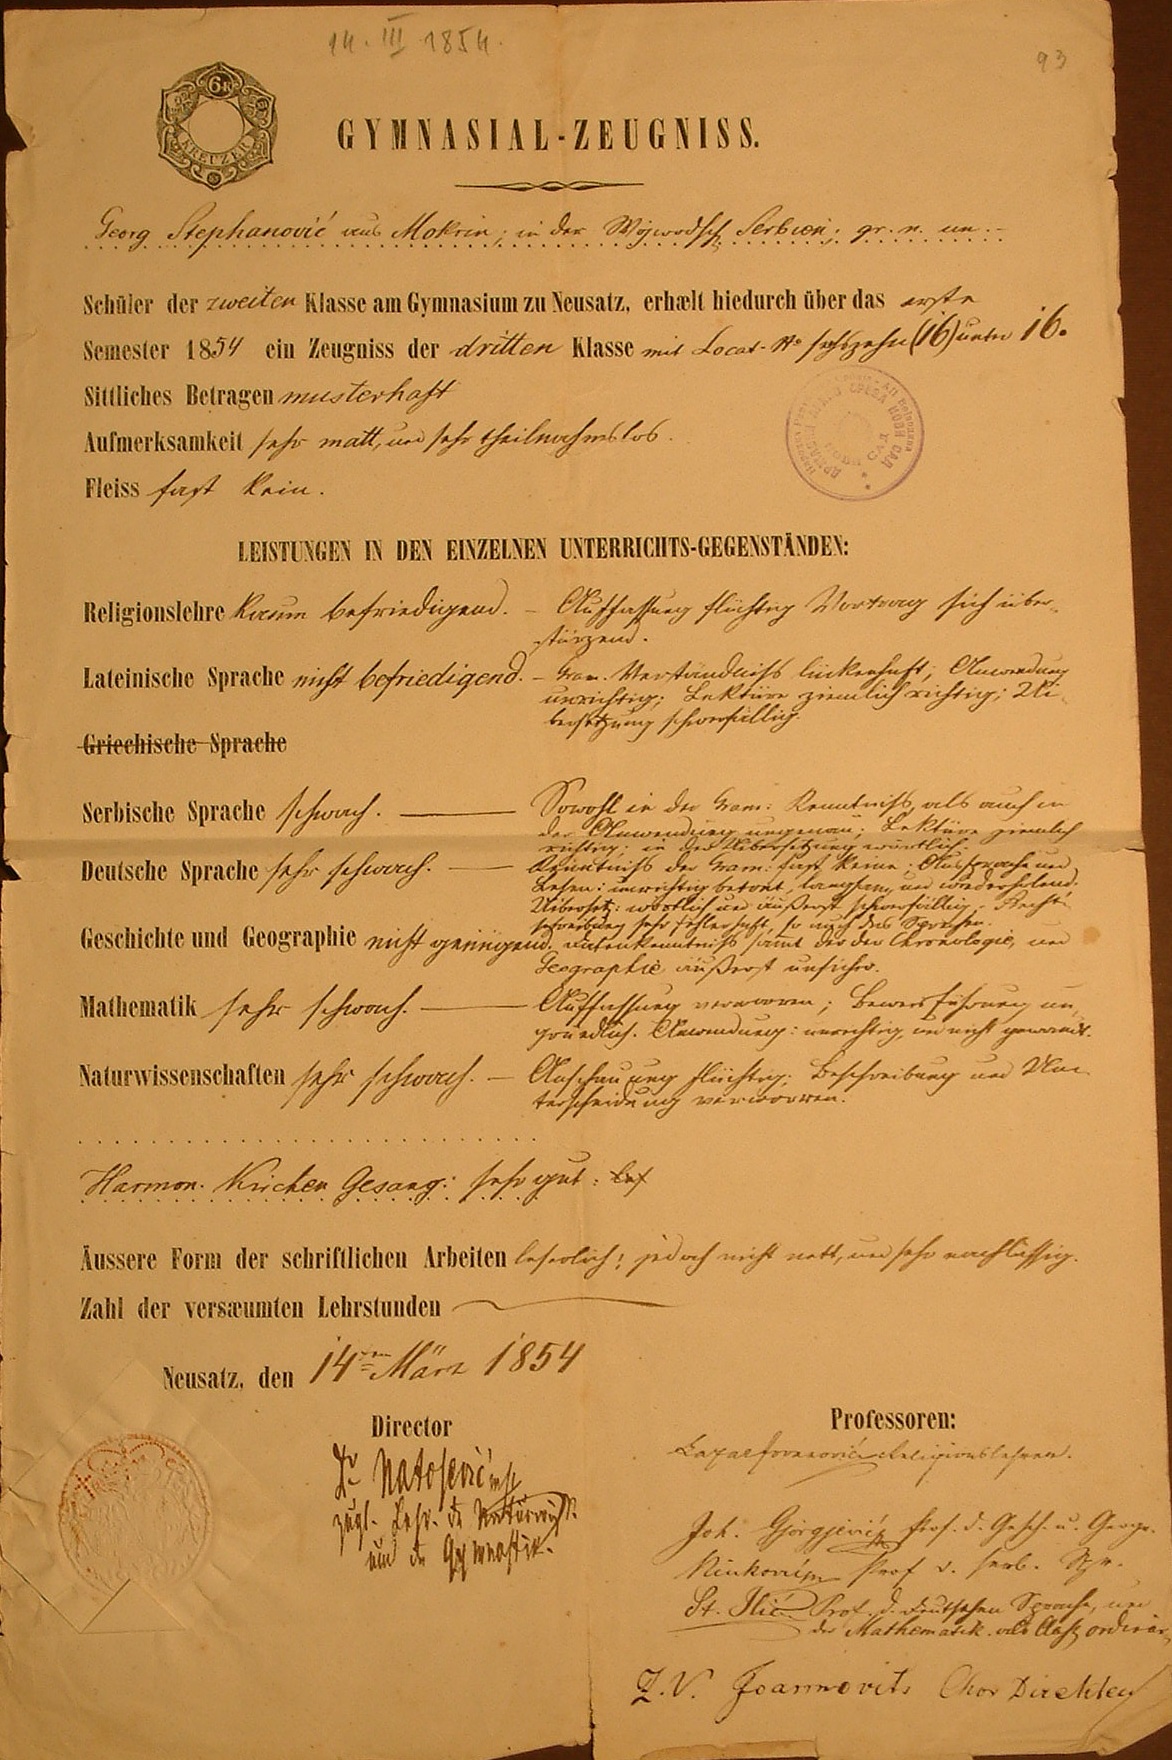 14. III 1854.
93
6K
KREUZER
GYMNASIAL-ZEUGNISS.
Georg Stephanović aus Mokrin, in der Wojwodsch. Serbien, gr. n. un.
Schüler der zweiten Klasse am Gymnasium zu Neusatz, erhælt hiedurch über das erste
Semester 1854 ein Zeugniss der dritten Klasse mit Locat-No sechszehn (16) unter 16.
Sittliches Betragen musterhaft
Aufmerksamkeit sehr matt, und sehr theilnahmslos.
Fleiss fast kein.
LEISTUNGEN IN DEN EINZELNEN UNTERRICHTS-GEGENSTÄNDEN:
Religionslehre kaum befriedigend. – Auffassung flüchtig Vortrag sich über-
stürzend.
Lateinische Sprache nicht befriedigend. – Gram. Verständniss lückenhaft; Anwendung
unrichtig; Lektüre ziemlich richtig; Ue-
bersetzung schwerfällig.
Griechische Sprache
Serbische Sprache schwach. — Sowohl in der Gram: Kenntniss, als auch in
der Anwendung ungenau; Lektüre ziemlich
richtig; in der Uebersetzung wörtlich.
Deutsche Sprache sehr schwach. — Kenntniss der Gram: fast keine; Aussprache und
Lesen: unrichtig betont, langsam, und wiederholend.
Uibersetz: wörtlich und äußerst schwerfällig. Recht-
schreibung sehr fehlerhaft, so auch das Sprechen.
Geschichte und Geographie nicht genügend. Datenkenntniss sammt der der Chronologie, und
Geographie äußerst unsicher.
Mathematik sehr schwach. — Auffassung verworren; Beweisführung un-
gründlich. Anwendung: unrichtig, und nicht gewandt.
Naturwissenschaften sehr schwach. — Anschauung flüchtig; Beschreibung und Un-
terscheidung verworren.
Harmon. Kirchen Gesang: sehr gut.
Äussere Form der schriftlichen Arbeiten leserlich; jedoch nicht nett, und sehr nachlässig.
Zahl der versæumten Lehrstunden
Neusatz, den 14ten März 1854
Director
Professoren:
Dr Natošević
zugl. Lehr. der Naturwiss.
und der Gymnastik.
Lazar Jovanović Religionslehrer.
Joh. Gjorgjević Prof. d. Gesch. u. Geogr.
Prof d. serb. Spr.
St. Ilić Prof. d. deutschen Sprache, und
der Mathematik als Class. ordinar.
Z. V. Joannovits Chor Direkter